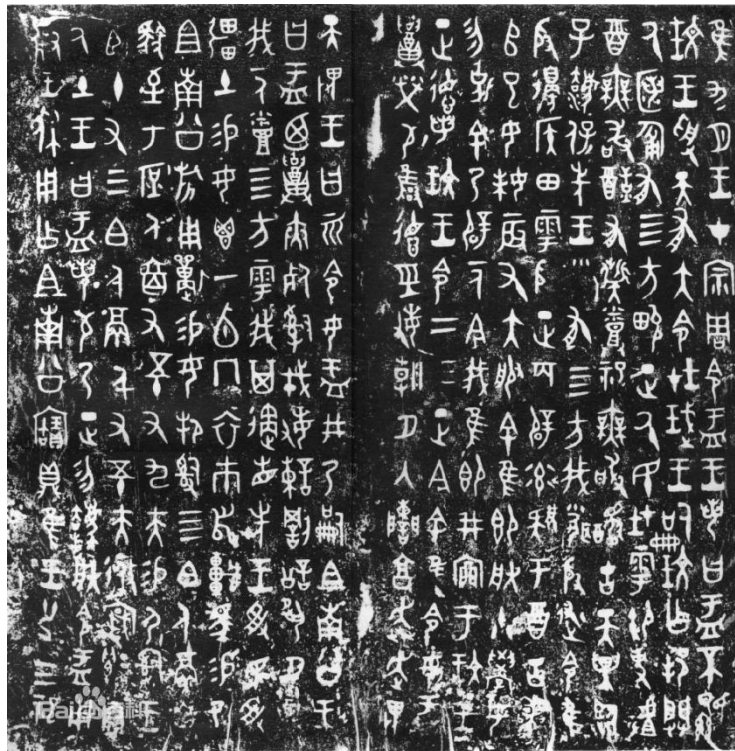 隹九月王才宗周令盂王若曰盂不顯
玟王受天有大令在珷王嗣玟乍邦闢
氒匿匍有四方畯正氒民在雩御事
酉無敢有烝祀無敢古天異臨
子灋保先王有四方我聞殷述令隹
殷邊侯田雩殷正百辟率肄于酉古喪
𠂤巳女妹辰又大服余隹即朕小學女
勿余乃辟一人今我隹即井㐭于玟王
正德若玟王令二三正今余隹令女盂
召榮敬雝德巠敏朝夕入讕享奔走畏
天畏王曰令女盂井乃嗣且南公王
曰盂乃召夾死司戎敏諫罰訟夙夕召
我一人烝四方雩我其遹省先王受民受
疆土易女鬯一卣冂衣巿舄車馬易乃
且南公旂用狩易女邦司四白人鬲自
馭至于庶人六百又五十又九夫易尸司王
臣十又三白人鬲千又五十夫遷自
氒土王曰盂若敬乃正勿灋朕令盂用
對王休用乍且南公寶鼎隹王廿又三祀
Baidu百科